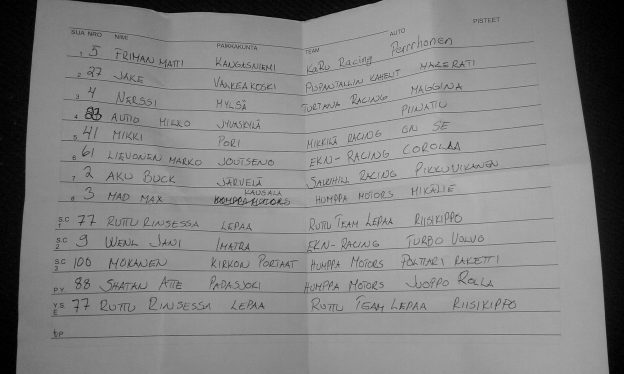 SIJA NRO NIMI PAIKKAKUNTA TEAM AUTO PISTEET
1 5 FRIMAN MATTI KANGASNIEMI KARU RACING
2 27 JAKE VALKEAKOSKI MAKERATI
3 4 NERSSI HYLSÄ SURTANA RACING MAGGINA
4 AUTIO MIKKO JYVÄSKYLÄ PIINATTU
5 41 MIKKI PORI MIKKILÄ RACING ON SE
6 61 LIEVONEN MARKO JOUTSENO EKN-RACING COROLAA
7 2 AKU BUCK JÄRVELÄ RACING
8 3 MAD MAX KAUSALA HUMPPA MOTORS
S.C 1 77 RUTTU RINSESSA LEPAA RUTTU TEAM LEPAA RIISIKIPPO
S.C 2 9 JANI IMATRA EKN-RACING TURBO VOLVO
S.C 3 100 MOKANEN KIRKON PORTAAT HUMPPA MOTORS POLTTARI RAKETTI
P.Y. 88 SHATAN ATTE PADASJOKI HUMPPA MOTORS JUOPPO ROLLA
Y.S. E 77 RUTTU RINSESSA LEPAA RUTTU TEAM LEPAA RIISIKIPPO